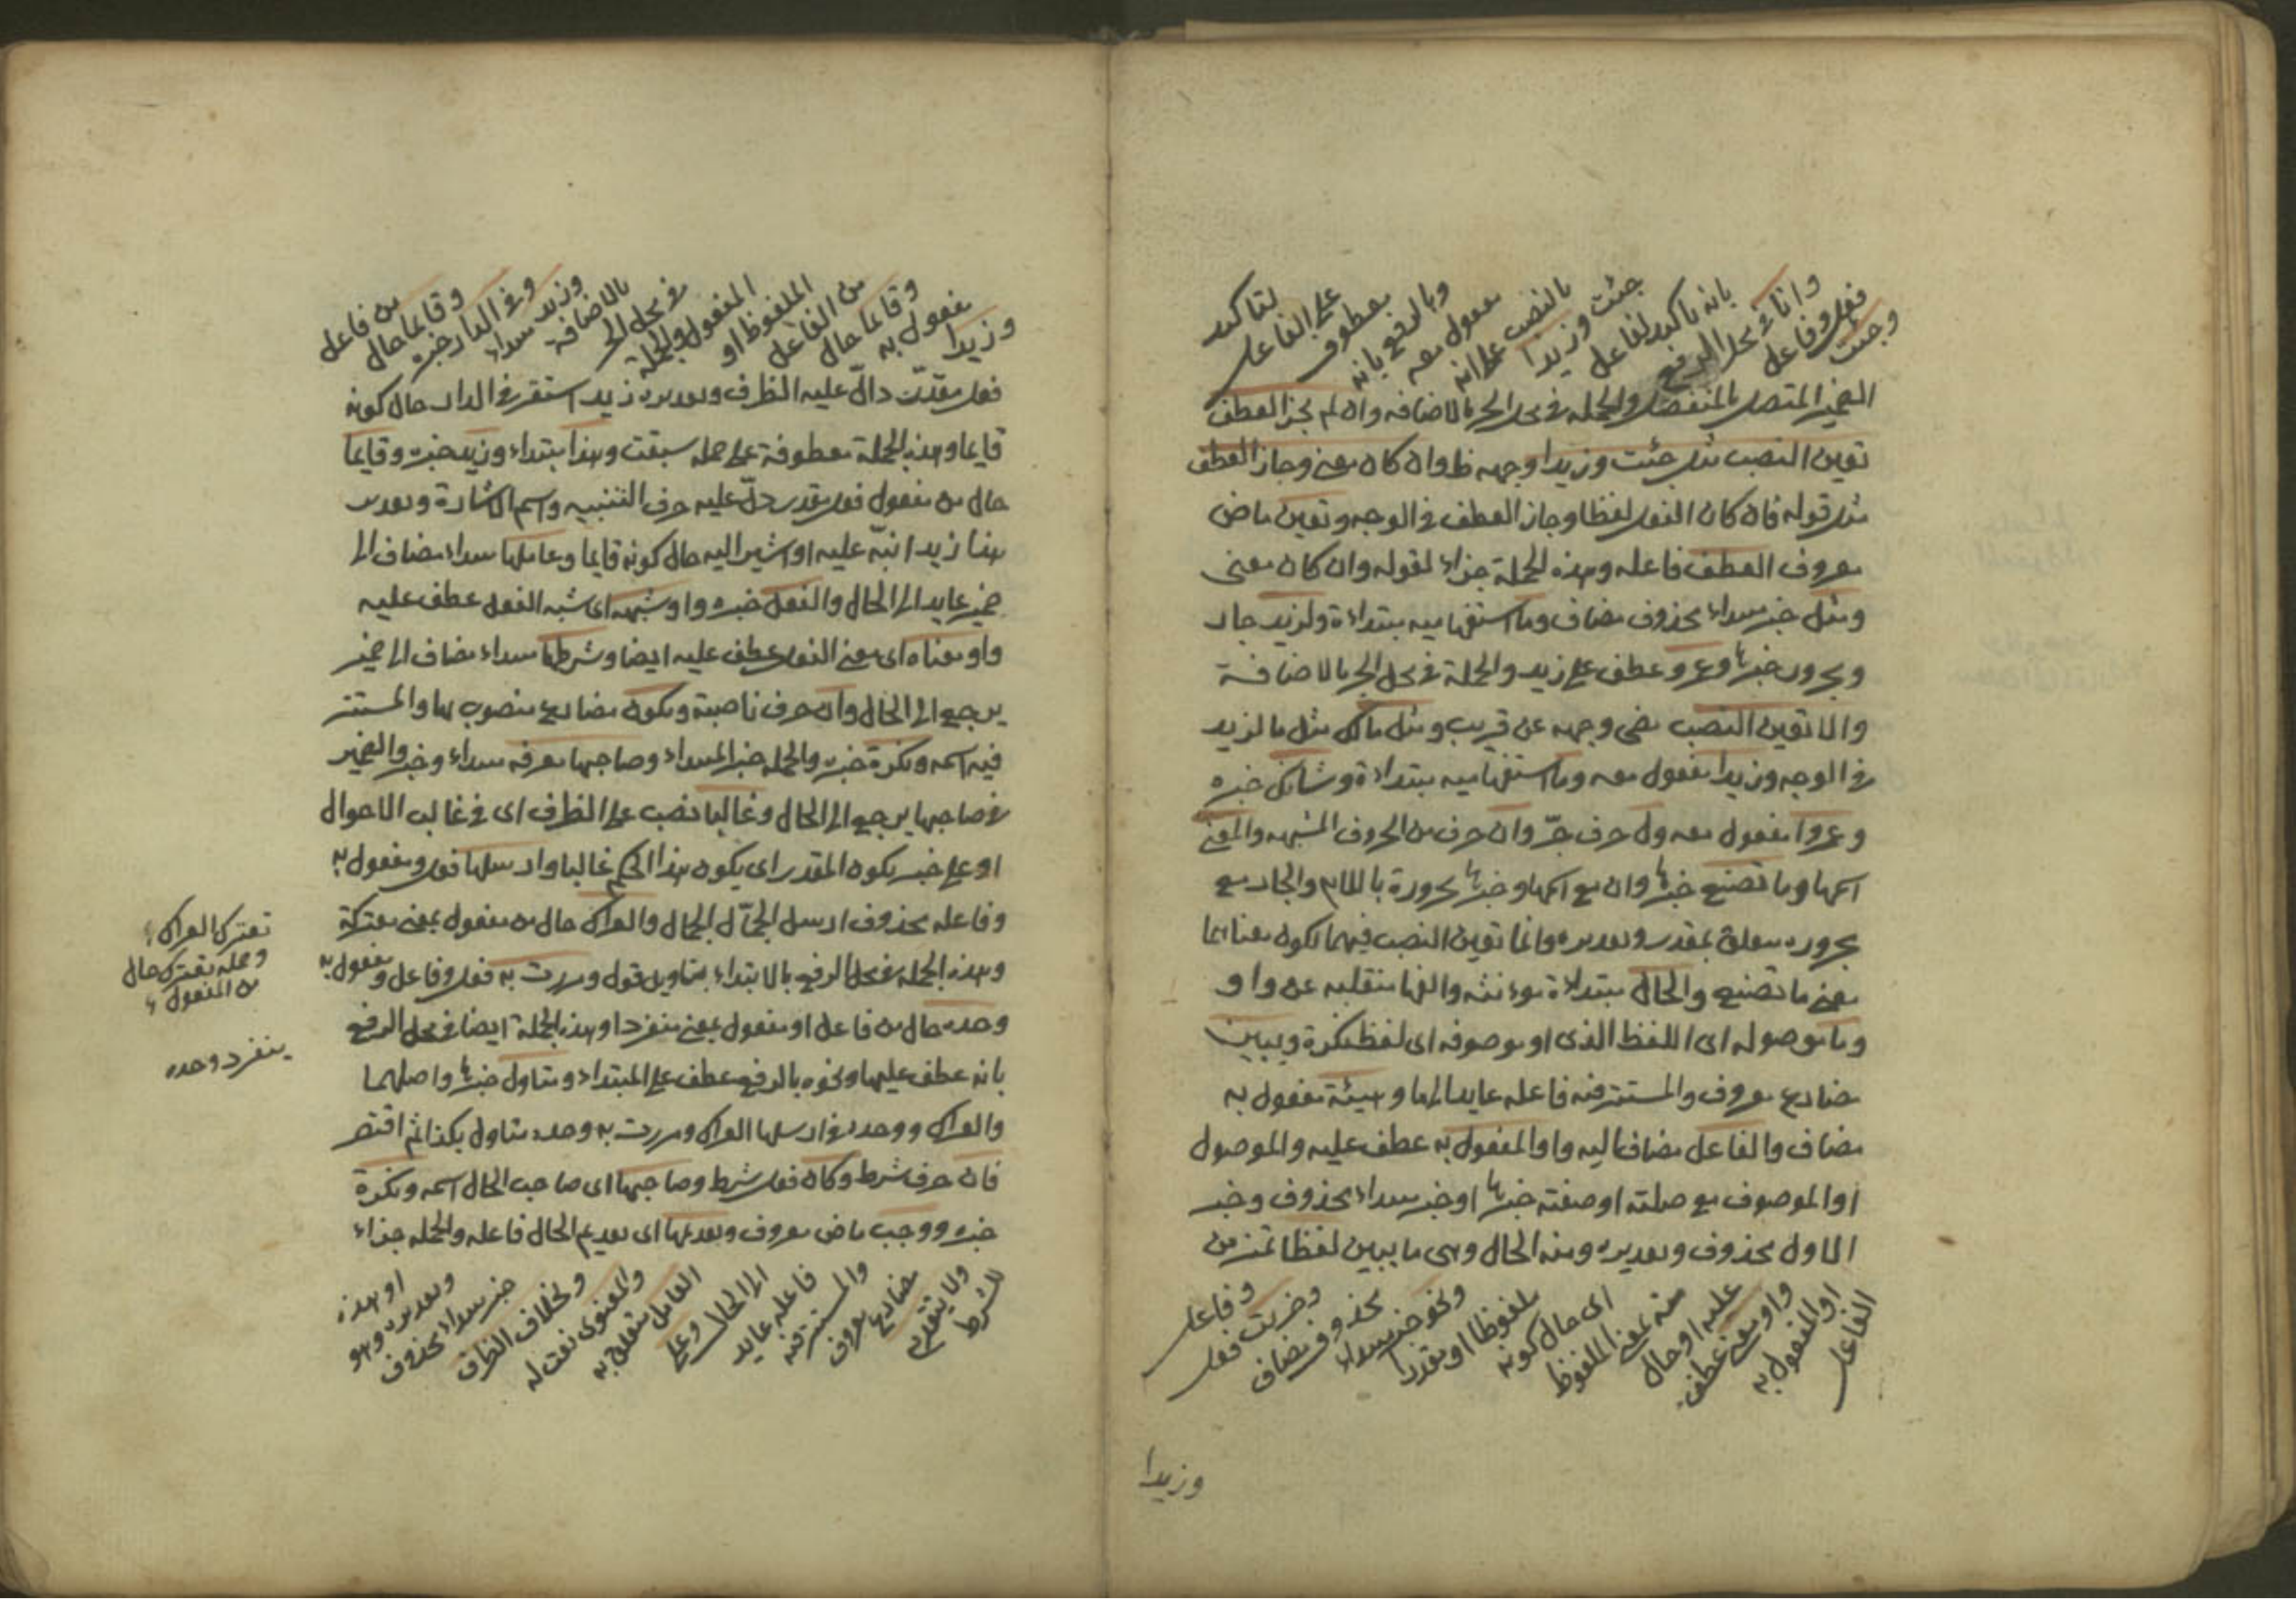 وجئت
فعل وفاعل
وانا في محل الرفع
بانه تاكيد لفاعل
جئت وزيدا
بالنصب على انه
مفعول معه
وبالرفع بانه
معطوف
على الفاعل
لتاكيد
الضمير المتصل بالمنفصل والجمله في محل الجر بالاضافه وان لم يجز العطف
تعين النصب مثل جئت وزيدا وجهه ظ وان كان معنى وجاز العطف
مثل قوله فان كان الفعل لفظا وجاز العطف في الوجه وتعين ماض
معروف العطف فاعله وهذه الجملة جزاء لقوله وان كان معنى
ومثل خبر مبتداء محذوف مضاف وما استفهاميه مبتداءة ولزيد جار
ومجرور خبرها وعمرو عطف على زيد والجملة في محل الجر بالاضافة
والا تعين النصب مضى وجهه عن قريب ومثل مالك مثل ما لزيد
في الوجه وزيدا مفعول معه وما استفهاميه مبتداءة وشانك خبره
وعمروا مفعول معه ول حرف جرّ وان حرف من الحروف المشبهه والمعنى
اسمها وما تصنع خبرها وان مع اسمها وخبرها مجرورة باللام والجار مع
مجروره متعلق بمقدر وتقديره وانما تعين النصب فيهما لكون معناهما
معنى ما تصنع والحال مبتداءة مونثه والفها منقلبه عن واو
وما موصوله اى اللفظ الذى او موصوفه اى لفظ نكرة ويبين
مضارع معروف والمستتر فيه فاعله عايد الى ما وهيئة مفعول به
مضاف والفاعل مضاف اليه واو المفعول به عطف عليه والموصول
او الموصوف مع صلته او صفته خبرها او خبر مبتداء محذوف وخبر
الاول محذوف وتقديره ومنه الحال وهي ما يبين لفظا تمييز من
الفاعل
او المفعول به
واو معنى عطف
عليه او حال
منه بمعنى الملفوظ
اى حال كونه
ملفوظا او مقدرا
ونحو خبر مبتداء
محذوف مضاف
وضربت فعل
وفاعل
وزيدا
وزيدا
مفعول به
وقايما حال
من الفاعل
الملفوظ او
المفعول والجملة
في محل الجر
بالاضافة
وزيد مبتداء
وفي الدار خبره
وقايما حال
من فاعل
فعل مقدّر دالّ عليه الظرف وتقديره زيد استقر في الدار حال كونه
قايما وهذه الجملة معطوفة على جمله سبقت وهذا مبتداء وزيد خبره وقايما
حال من مفعول فعل مقدر دلّ عليه حرف التنبيه واسم الاشارة وتقديره
هذا زيد انبّه عليه او اشير اليه حال كونه قايما وعاملها مبتداء مضاف الى
ضمير عايد الى الحال والفعل خبره واو شبهه اى شبه الفعل عطف عليه
واو معناه اى معنى الفعل عطف عليه ايضا وشرطها مبتداء مضاف الى ضمير
يرجع الى الحال وان حرف ناصبة وتكون مضارع منصوب بها والمستتر
فيه اسمه ونكرة خبره والجمله خبر المبتداء وصاحبها معرفه مبتداء وخبر والضمير
في صاحبها يرجع الى الحال وغالبا نصب على الظرف اى في غالب الاحوال
او على خبر يكون المقدر اى يكون هذا الحكم غالبا وارسلها فعل ومفعول به
وفاعله محذوف ارسل الجمّال الجمال والعراك حال من مفعول بمعنى معتركة
وهذه الجملة في محل الرفع بالابتداء بتاويل قول ومررت به فعل وفاعل ومفعول به
وحده حال من فاعل او مفعول بمعنى منفردا وهذه الجملة ايضا في محل الرفع
بانه عطف عليها ونحوه بالرفع عطف على المبتداء ومتاول خبرها واصلهما
والعراك ووحده في ارسلها العراك ومررت به وحده متاول بكذا ثم اقتصر
فان حرف شرط وكان فعل شرط وصاحبها اى صاحب الحال اسمه ونكرة
خبره ووجب ماض معروف وتقديمها اى تقديم الحال فاعله والجمله جزاء
للشرط
ولا يتقدم
مضارع معروف
والمستتر فيه
فاعله عايد
الى الحال وعلى
العامل متعلق به
والمعنوى نعت له
وبخلاف الظرف
خبر مبتداء محذوف
وتقديره وهو
او هذه
تعترك العراك
وجمله تعترك حال
من المفعول
ينفرد وحده